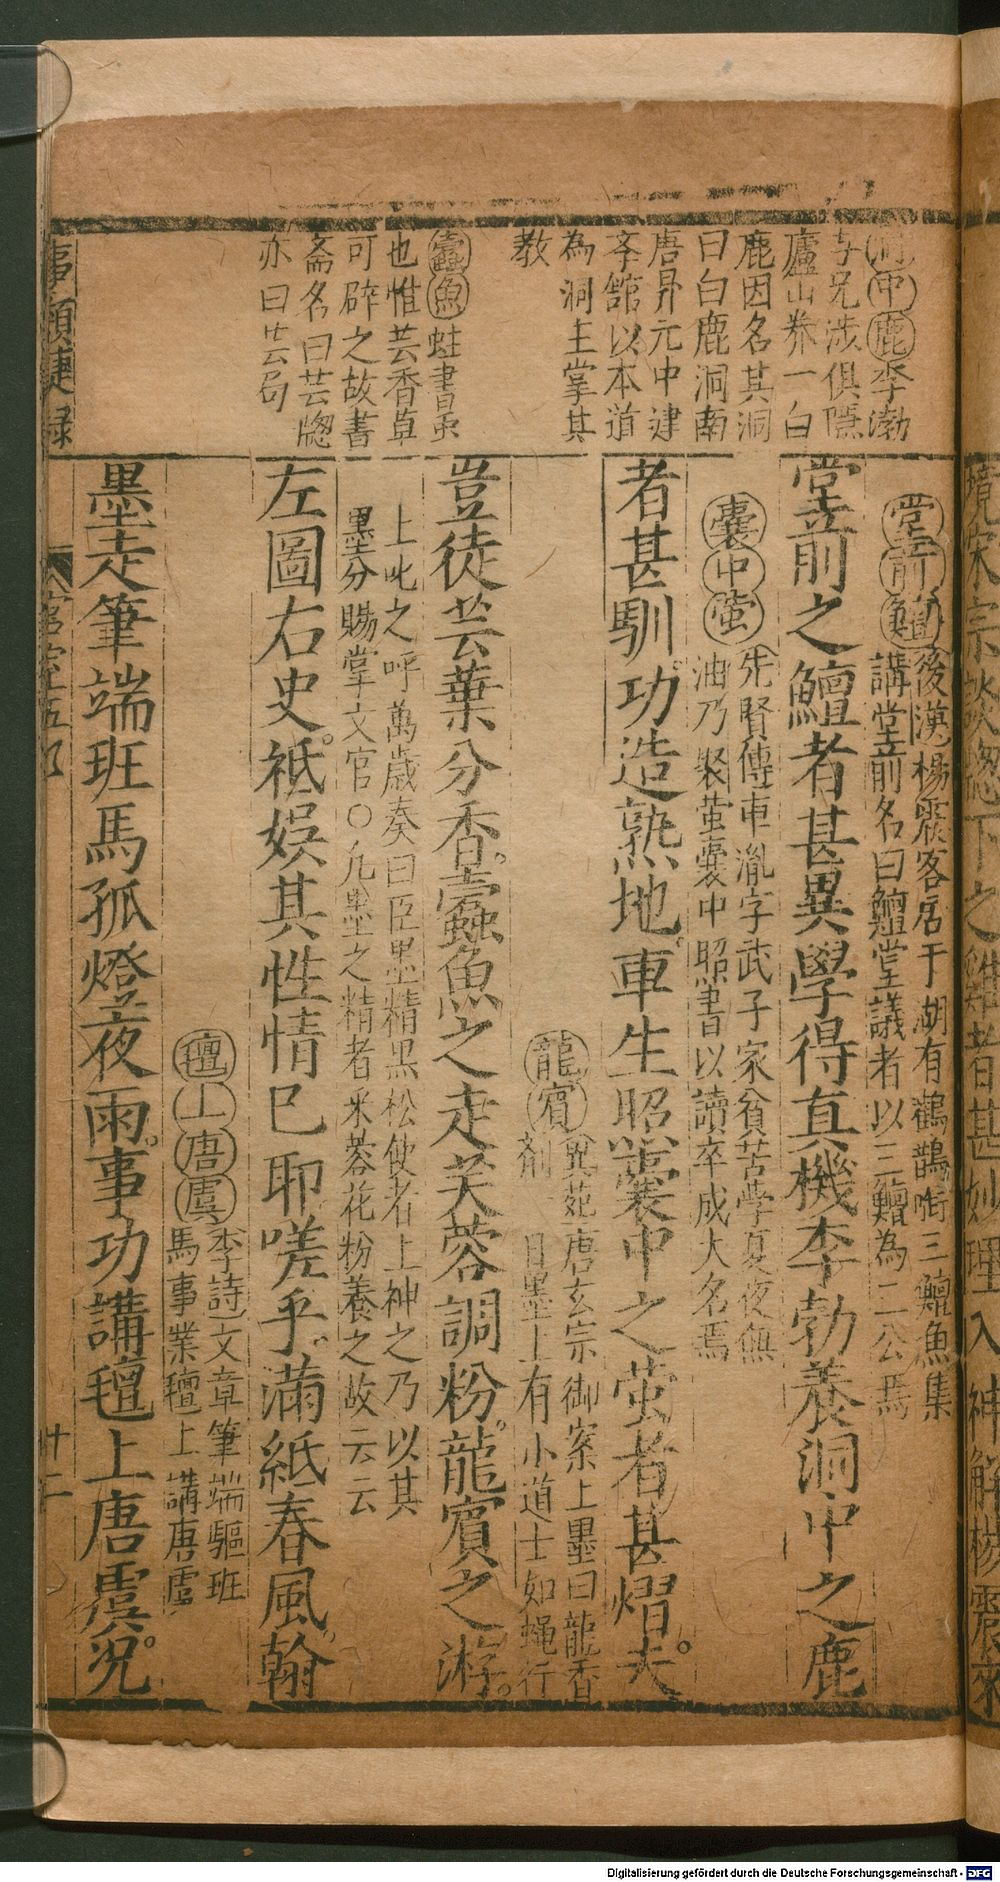 洞中鹿李渤
與兄涉俱隱
廬山養一白
鹿因名其洞
曰白鹿洞南
唐昇元中建
李舘以本道
為洞主掌其
教
蠹魚蛀書虫
也惟芸香草
可辟之故書
齋名曰芸牕
亦曰芸局
堂前鱣後漢楊震客居于湖有鸛鵲啣三鱣魚集
講堂前名曰鱣堂議者以三鱣為二公焉
堂前之鱣者甚異學得真機李勃養洞中之鹿
囊中螢先賢傳車胤字武子家貧苦學夏夜無
油乃聚萤囊中照書以讀卒成大名焉
者甚馴功造熟地車生照囊中之萤者甚熠夫
龍賓異苑唐玄宗御案上墨曰龍香
劑 日墨上有小道士如蝇行
豈徒芸葉分香蠹魚之走芙蓉調粉龍賓之游
上叱之呼萬歲奏曰臣墨精黑松使者上神之乃以其
墨分賜掌文官〇凢墨之精者米蓉花粉養之故云云
左圖右史祗娛其性情已耶嗟乎滿紙春風翰
氊上唐虞李詩文章筆端驅班
馬事業氊上講唐虞
墨走筆端班馬孤燈夜雨事功講氊上唐虞况
事類捷録
十二
境宋宗談牕下之雞者甚妙理入神解楊震來
Digitalisierung gefördert durch die Deutsche Forschungsgemeinschaft - DFG